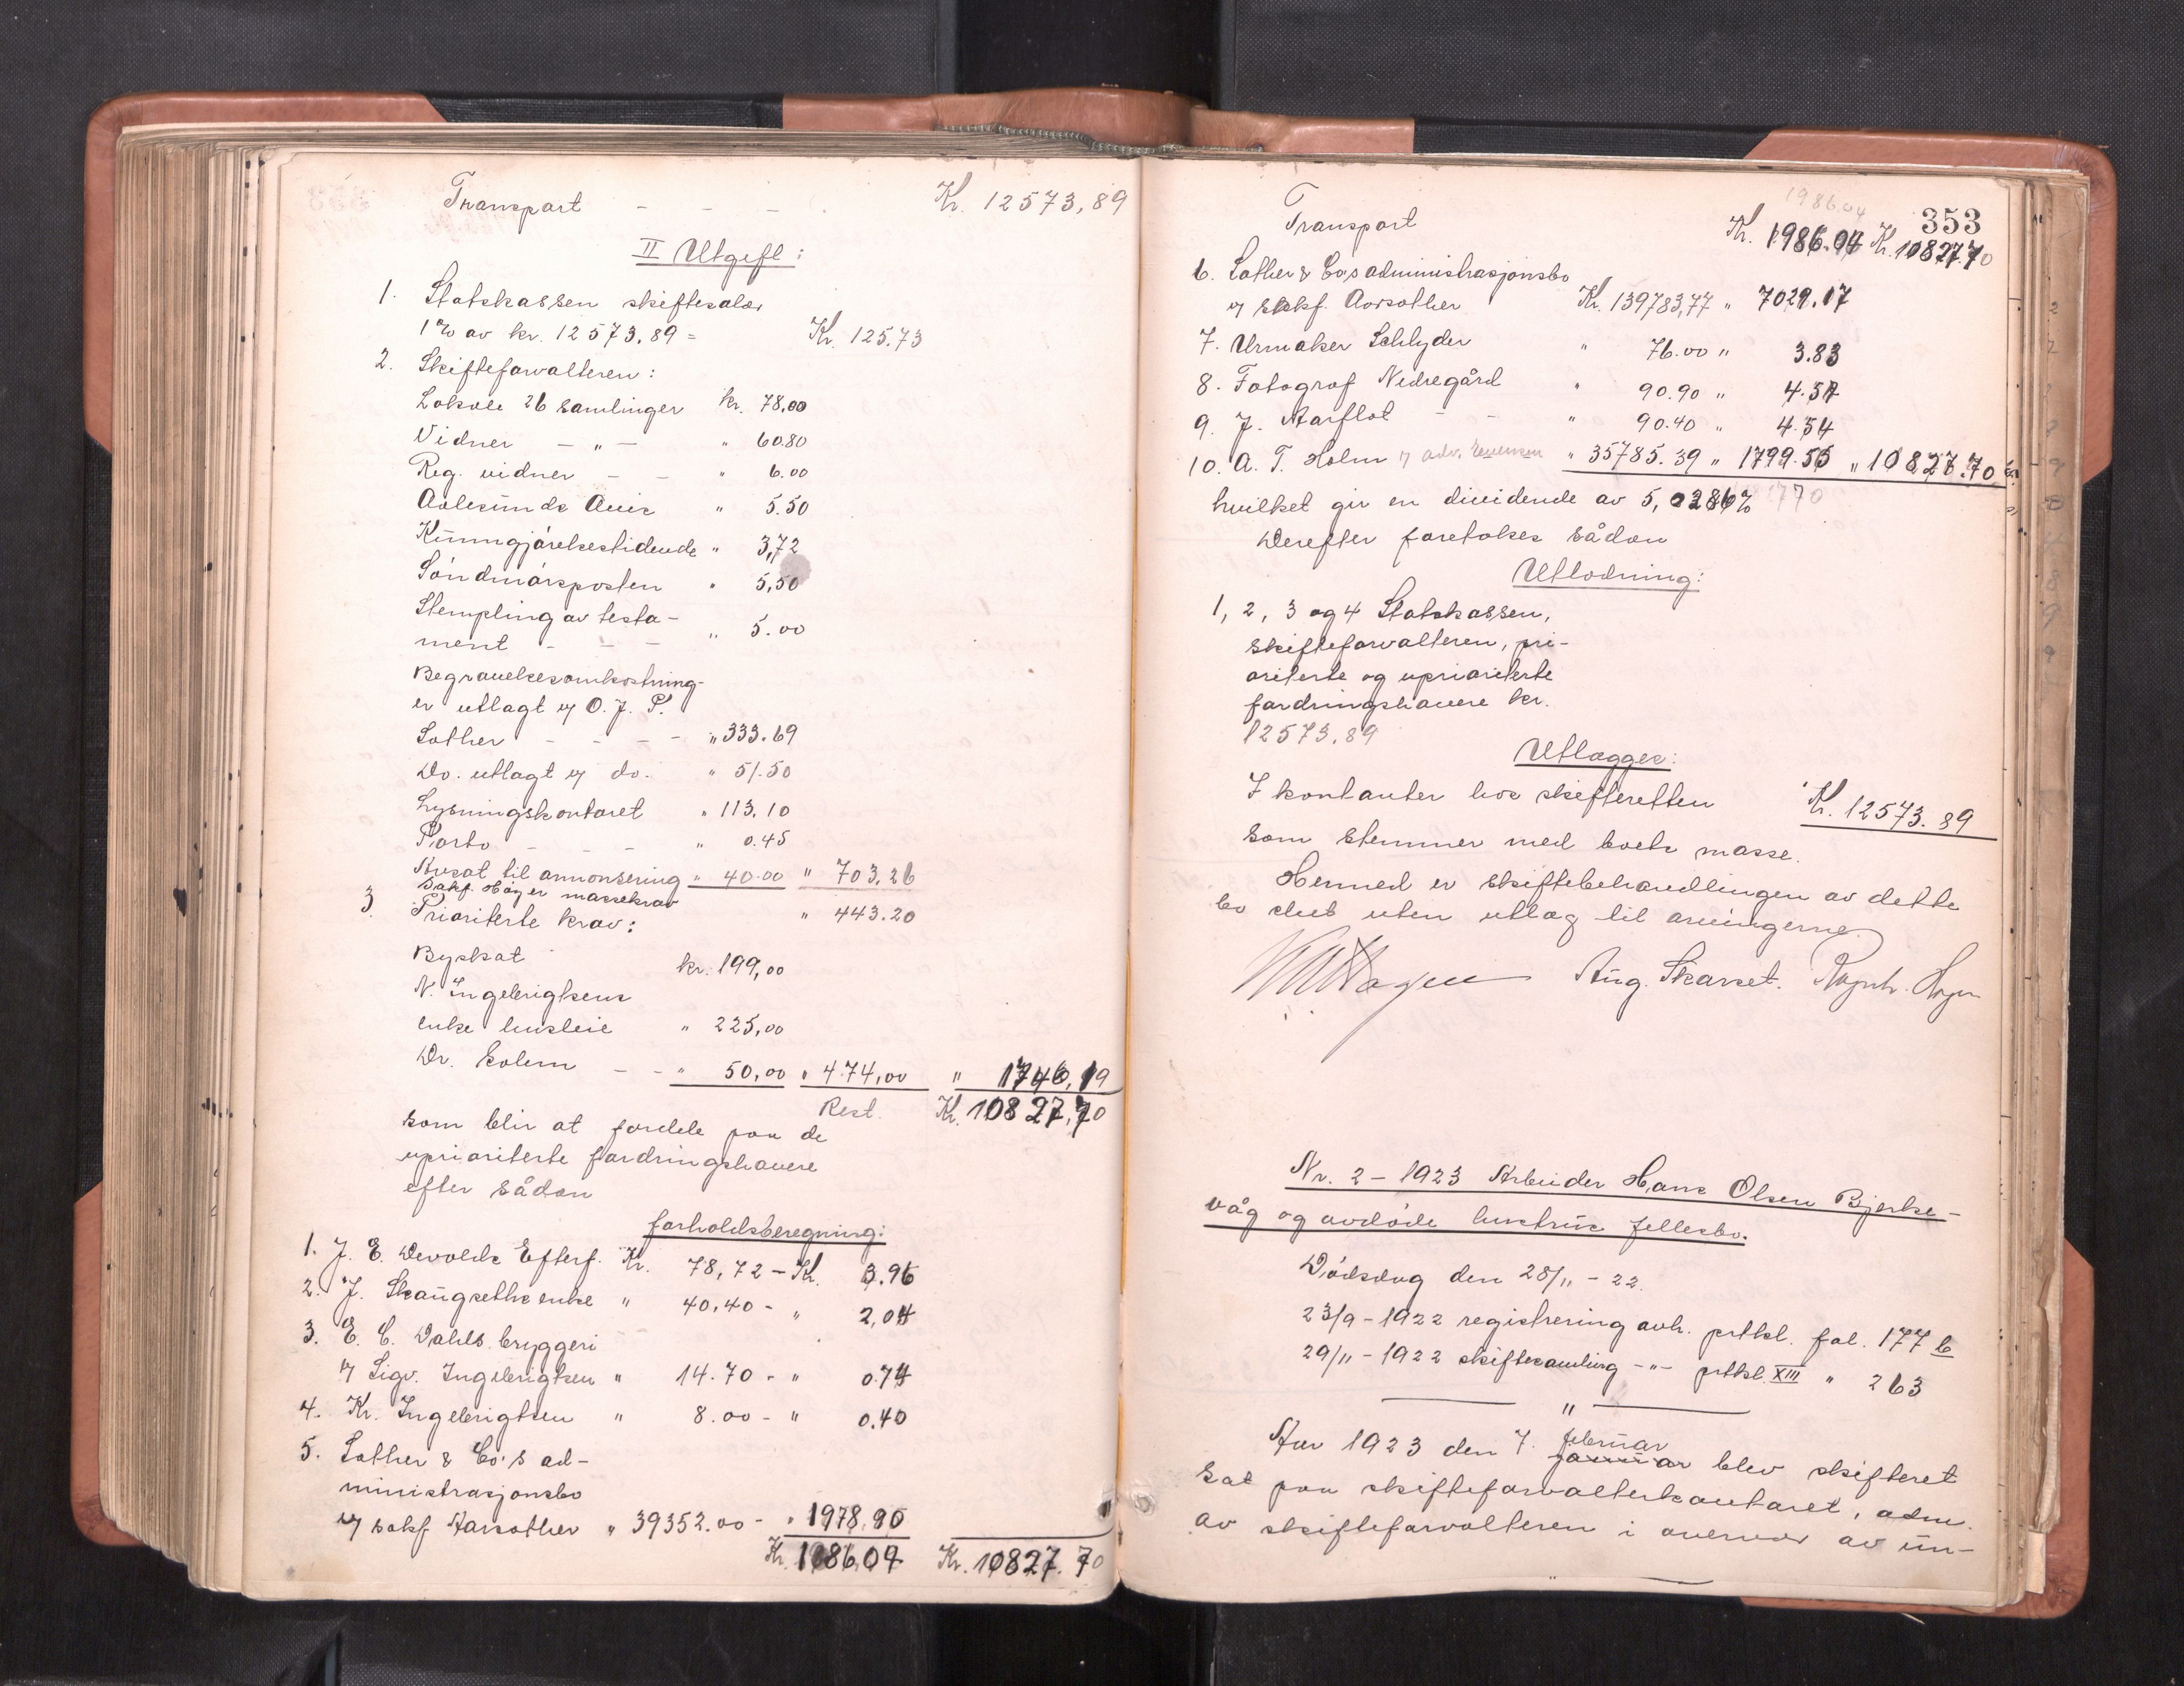 Transport - - - Kr. 12573,89
II Utgift:
1. Statskassen skiftesalær
1% av kr. 12573.89 = Kr. 125.73
2. Skifteforvalteren:
Lokale 26 samlinger kr. 78,00
Vidner - " - " 60.80
Reg. vidner - - " 6.00
Aalesunds Avis " 5.50
Kunngjørelsestidende " 3,72
Söndmörsposten " 5,50
Stempling av testa-
ment - - - " 5.00
Begravelsesomkostning-
er utlagt v O. J. P.
Sother - - - - " 333.69
Do. utlagt v do. " 51.50
Lysningskontoret " 113.10
Porto - - - " 0.45
Avsat til annonsering " 40.00 " 703,26
Sakf. Høyer massekrav " 443.20
3. Prioriterte krav:
Byskat kr. 199,00
N. Ingebrigtsens
enke husleie " 225,00
Dr. Eolem - - " 50,00 " 474,00 " 1746,19
Rest. Kr. 10827,70
som blir at fordele paa de
uprioriterte fordringshavere
efter sådan
forholdsberegning:
1. J. E. Devolds Efterf. Kr. 78,72 - Kr. 3.96
2. J. Skaugseths enke " 40,40 - " 2,04
3. E. C. Dahls bryggeri
v Sigv. Ingebrigtsen " 14.70 - " 0.74
4. Kr. Ingebrigtsen " 8.00 - " 0.40
5. Sother & Co's ad-
ministrasjonsbo
v sakf. Aarsother " 39352.00 - " 1978,90
Kr. 1986,04 Kr. 10827.70
1986.04
353
Transport Kr. 1986.04 Kr. 10827.70
6. Sother & Co's administrasjonsbo
v sakf. Aarsother Kr. 139783,77 " 7029.17
7. Urmaker Schlyder " 76.00 " 3.83
8. Fotograf Nedregård " 90.90 " 4.57
9. J. Aarflot - - " 90.40 " 4.54
10. A. T. Holm v adv. " 35785.39 " 1799.55 " 10827.70
hvilket gir en dividende av 5,0286%
Derefter foretokes sådan
Utlodning:
1, 2, 3 og 4 Statskassen,
skifteforvalteren, pri-
oriterte og uprioriterte
fordringshavere kr.
12573,89
Utlægges:
I kontanter hos skifteretten Kr. 12573.89
som stemmer med boets masse.
Hermed er skiftebehandlingen av dette
bo slut uten utlæg til arvingerne.
Aug. Skarset.
Nr. 2 - 1923 Arbeider Hans Olsen Bjerke-
våg og avdøde hustrus fellesbo.
Dödsdag den 28/11 - 22.
23/9 - 1922 registrering avh. prtkl. fol. 177 b
29/11 - 1922 skiftesamling -"- prtkl. XIII " 263
"
Aar 1923 den 7. februar
januar blev skifteret
sat paa skifteforvalterkontoret, adm.
av skifteforvalteren i overvær av un-